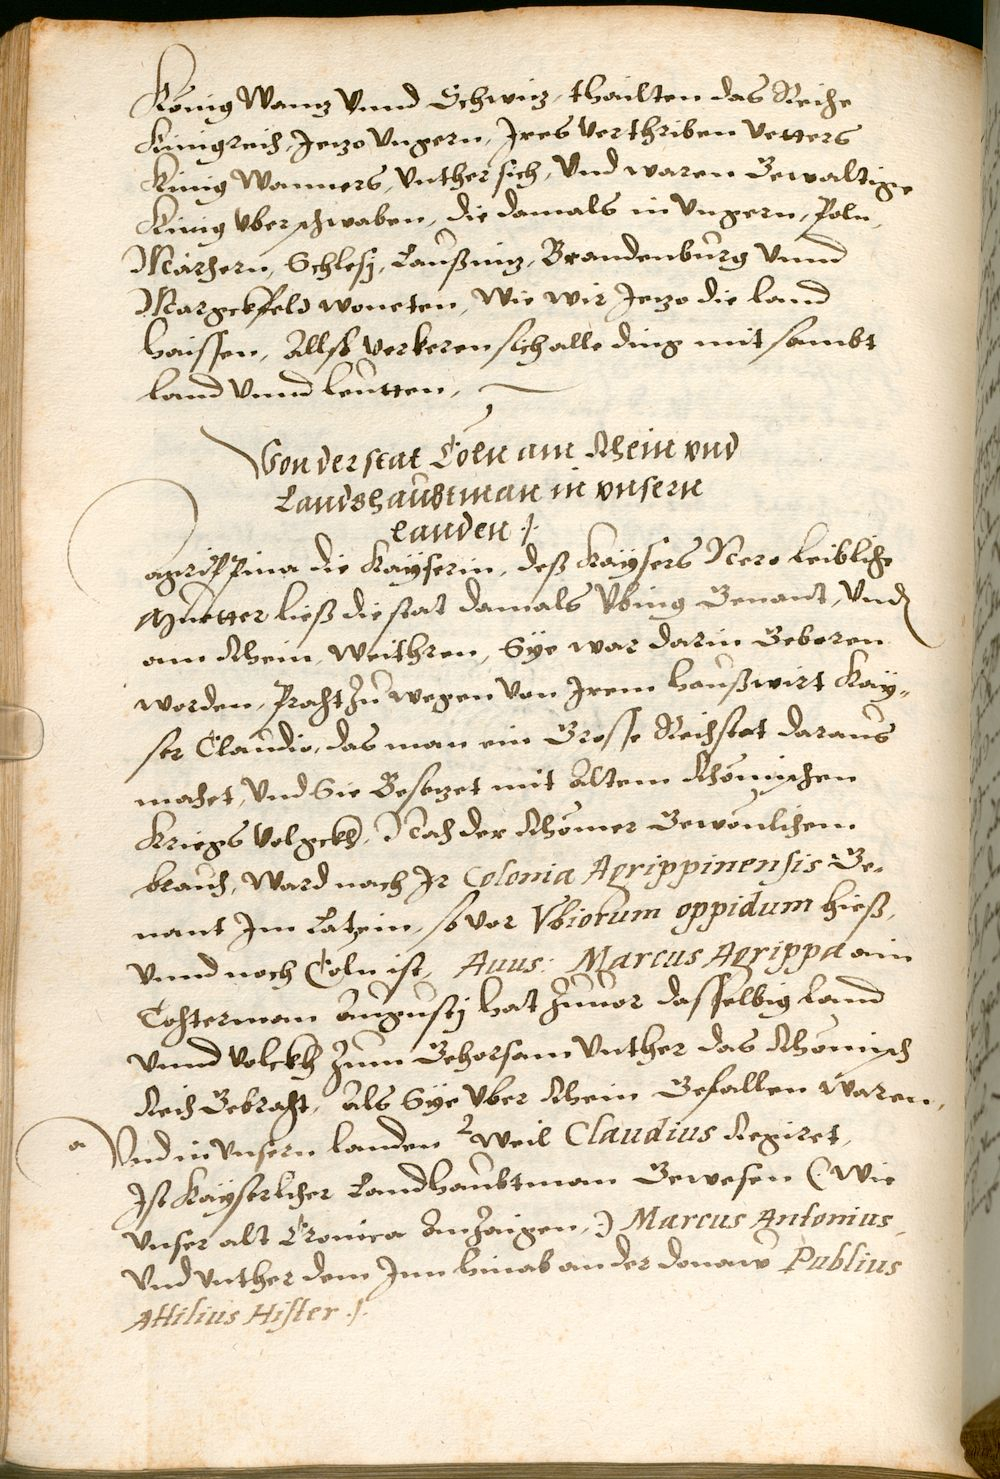 König Wang Vnnd Schwitz, thailten das Reiche
Künigreich, Jetzo Vngern, Jres Verthriben Vetters
König Wanners, Vnther sich, Vnd waren Gewaltige
König Vber schwaben, die damals in Vngern, Poln,
Märhern, Schlesy, Laußnitz, Brandenburg Vnnd
Margckfeld woneten, Wie wir Jetzo die land
haissen, Allso Verkeren sich alle ding mit sambt
land Vnnd leutten,
Von der stat Cöln am Rhein vnd
Landshaubtman in vnsern
landen ./.
Agrippina die Kayserin, deß Kaysers Nero leibliche
Muetter ließ die stat damals Vbing Genant, Vnd
am Rhein, Weithren, Sye war darin Geboren
worden, Pracht Zu wegen Von Jrem haußwirt Kay-
ser Claudio, das man ein Grosse Reichstat daraus
machet, Vnd Sie Besetzet mit Altem Rhömischen
Kriegs Volgckh, Nach der Rhömer Gewonlichem
brauch, Ward nach Jr Colonia Agrippinensis Ge-
nant Jm Latein, so Vor Vbiorum oppidum hieß,
Vnnd noch Cöln ist, Auus: Marcus Agrippa ain
Tochterman Augusty hat Zuuor dasselbig land
Vnnd Volckh Zum Gehorsam Vnther das Rhömisch
Reich Gebracht, Als Sye Vber Rhein Gefallen Waren,
a Vnd in Vnsern landen 2 Weil Claudius Regiret,
Jst Kayserlicher Landhaubtman Gewesen (Wie
Vnser alt Cronica Anzaigen,) Marcus Antonius,
Vnd Vnther dem Jnn hinab an der donaw Publius
Attilius Hister ./.